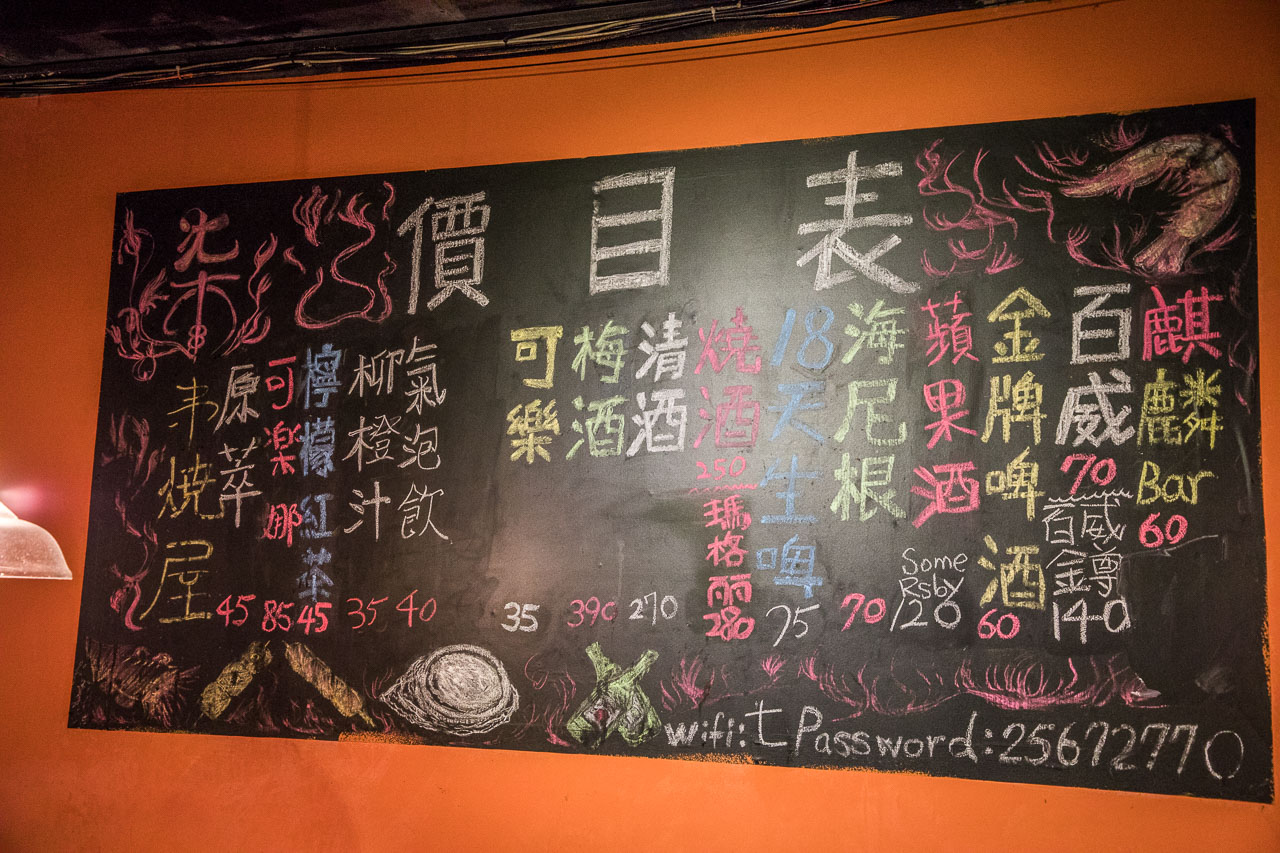 價目表
麒麟Bar 60
百威 70
百威金鐏 140
金牌啤酒 60
蘋果酒 Some Rsby 120
海尼根 70
18天生啤 75
燒酒 250
瑪格丽 280
清酒 270
梅酒 390
可樂 35
氣泡飲 40
柳橙汁 35
檸檬紅茶 45
可楽娜 85
原萃 45
柒
串燒屋
wifi:七 Password:25672770